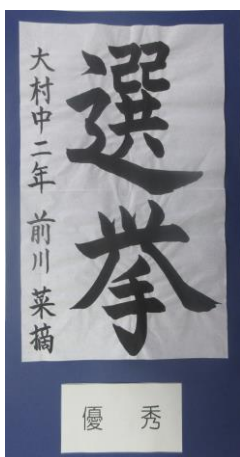 選挙
大村中二年 前川 菜摘
優 秀